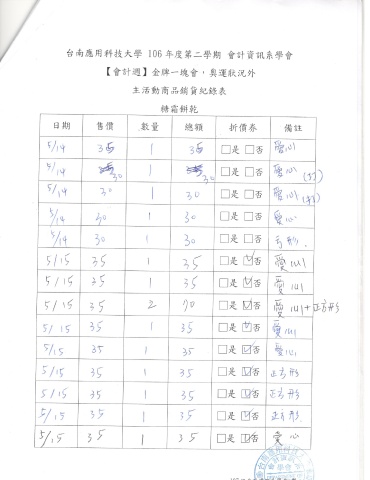 台南應用科技大學 106 年度第二學期 會計資訊系學會
【會計週】金牌一塊會，奧運狀況外
生活動商品銷貨紀錄表
糖霜餅乾
日期 售價 數量 總額 折價券 備註
5/14 35 1 35 □是 □否 愛心
5/14 30 1 30 □是 □否 愛心
5/14 30 1 30 □是 □否 愛心
5/14 30 1 30 □是 □否 愛心
5/14 30 1 30 □是 □否 方形.
5/15 35 1 35 □是 ☑否 愛心
5/15 35 1 35 □是 ☑否 愛心
5/15 35 2 70 □是 ☑否 愛心+正方形
5/15 35 1 35 □是 ☑否 愛心
5/15 35 1 35 □是 ☑否 愛心
5/15 35 1 35 □是 ☑否 正方形
5/15 35 1 35 □是 ☑否 正方形
5/15 35 1 35 □是 ☑否 正方形.
5/15 35 1 35 □是 ☑否 愛心